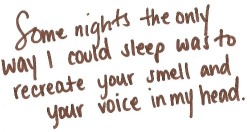 Some nights the only
way I could sleep was to
recreate your smell and
your voice in my head.